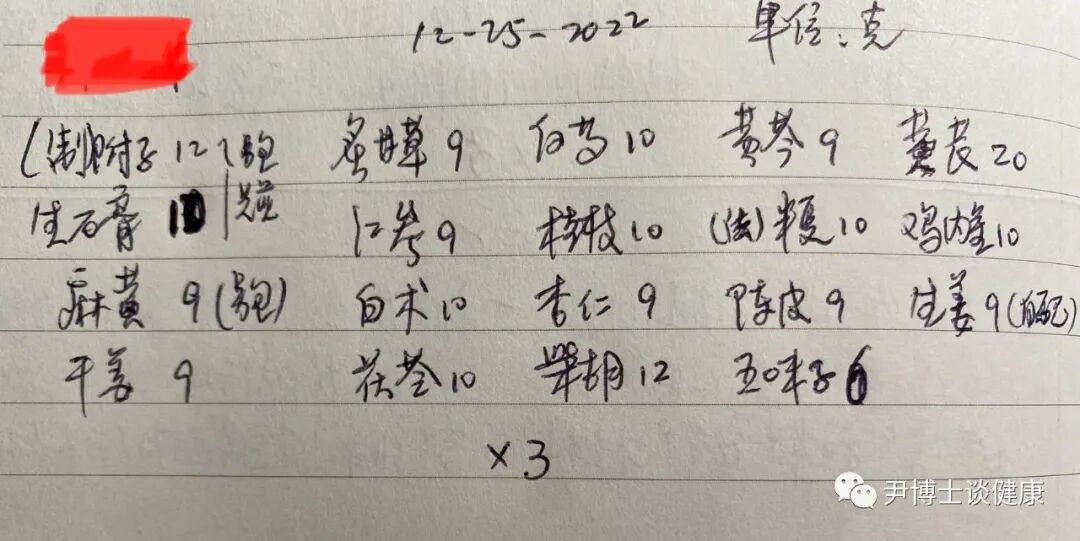 12-25-2022 单位:克
(制附子 12 另包 炙甘草 9 白芍 10 黄芩 9 20
生石膏 10 先煎 红参 9 桂枝 10 (法)半夏 10 鸡内金 10
麻黄 9(另包) 白术 10 杏仁 9 陈皮 9 生姜 9(自配)
干姜 9 茯苓 10 柴胡 12 五味子 6
×3
尹博士谈健康